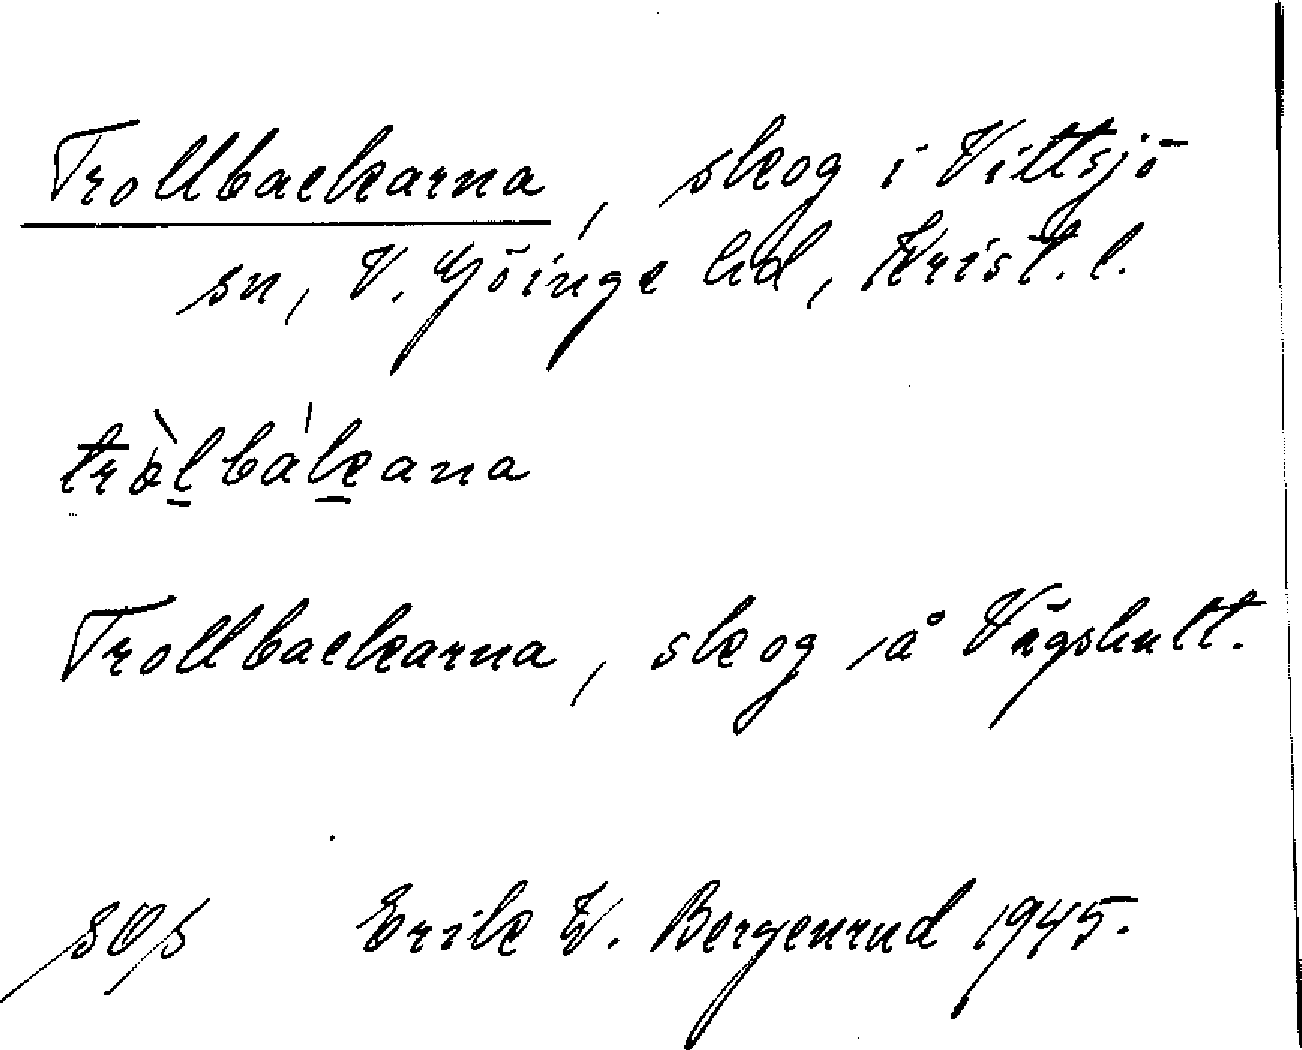 Trollbackarna, skog i Vittsjö
sn, V. Göinge hd, Krist. l.
tròlbákana
Trollbackarna, skog på Vägshult.
Erik W. Bergenrud 1945.